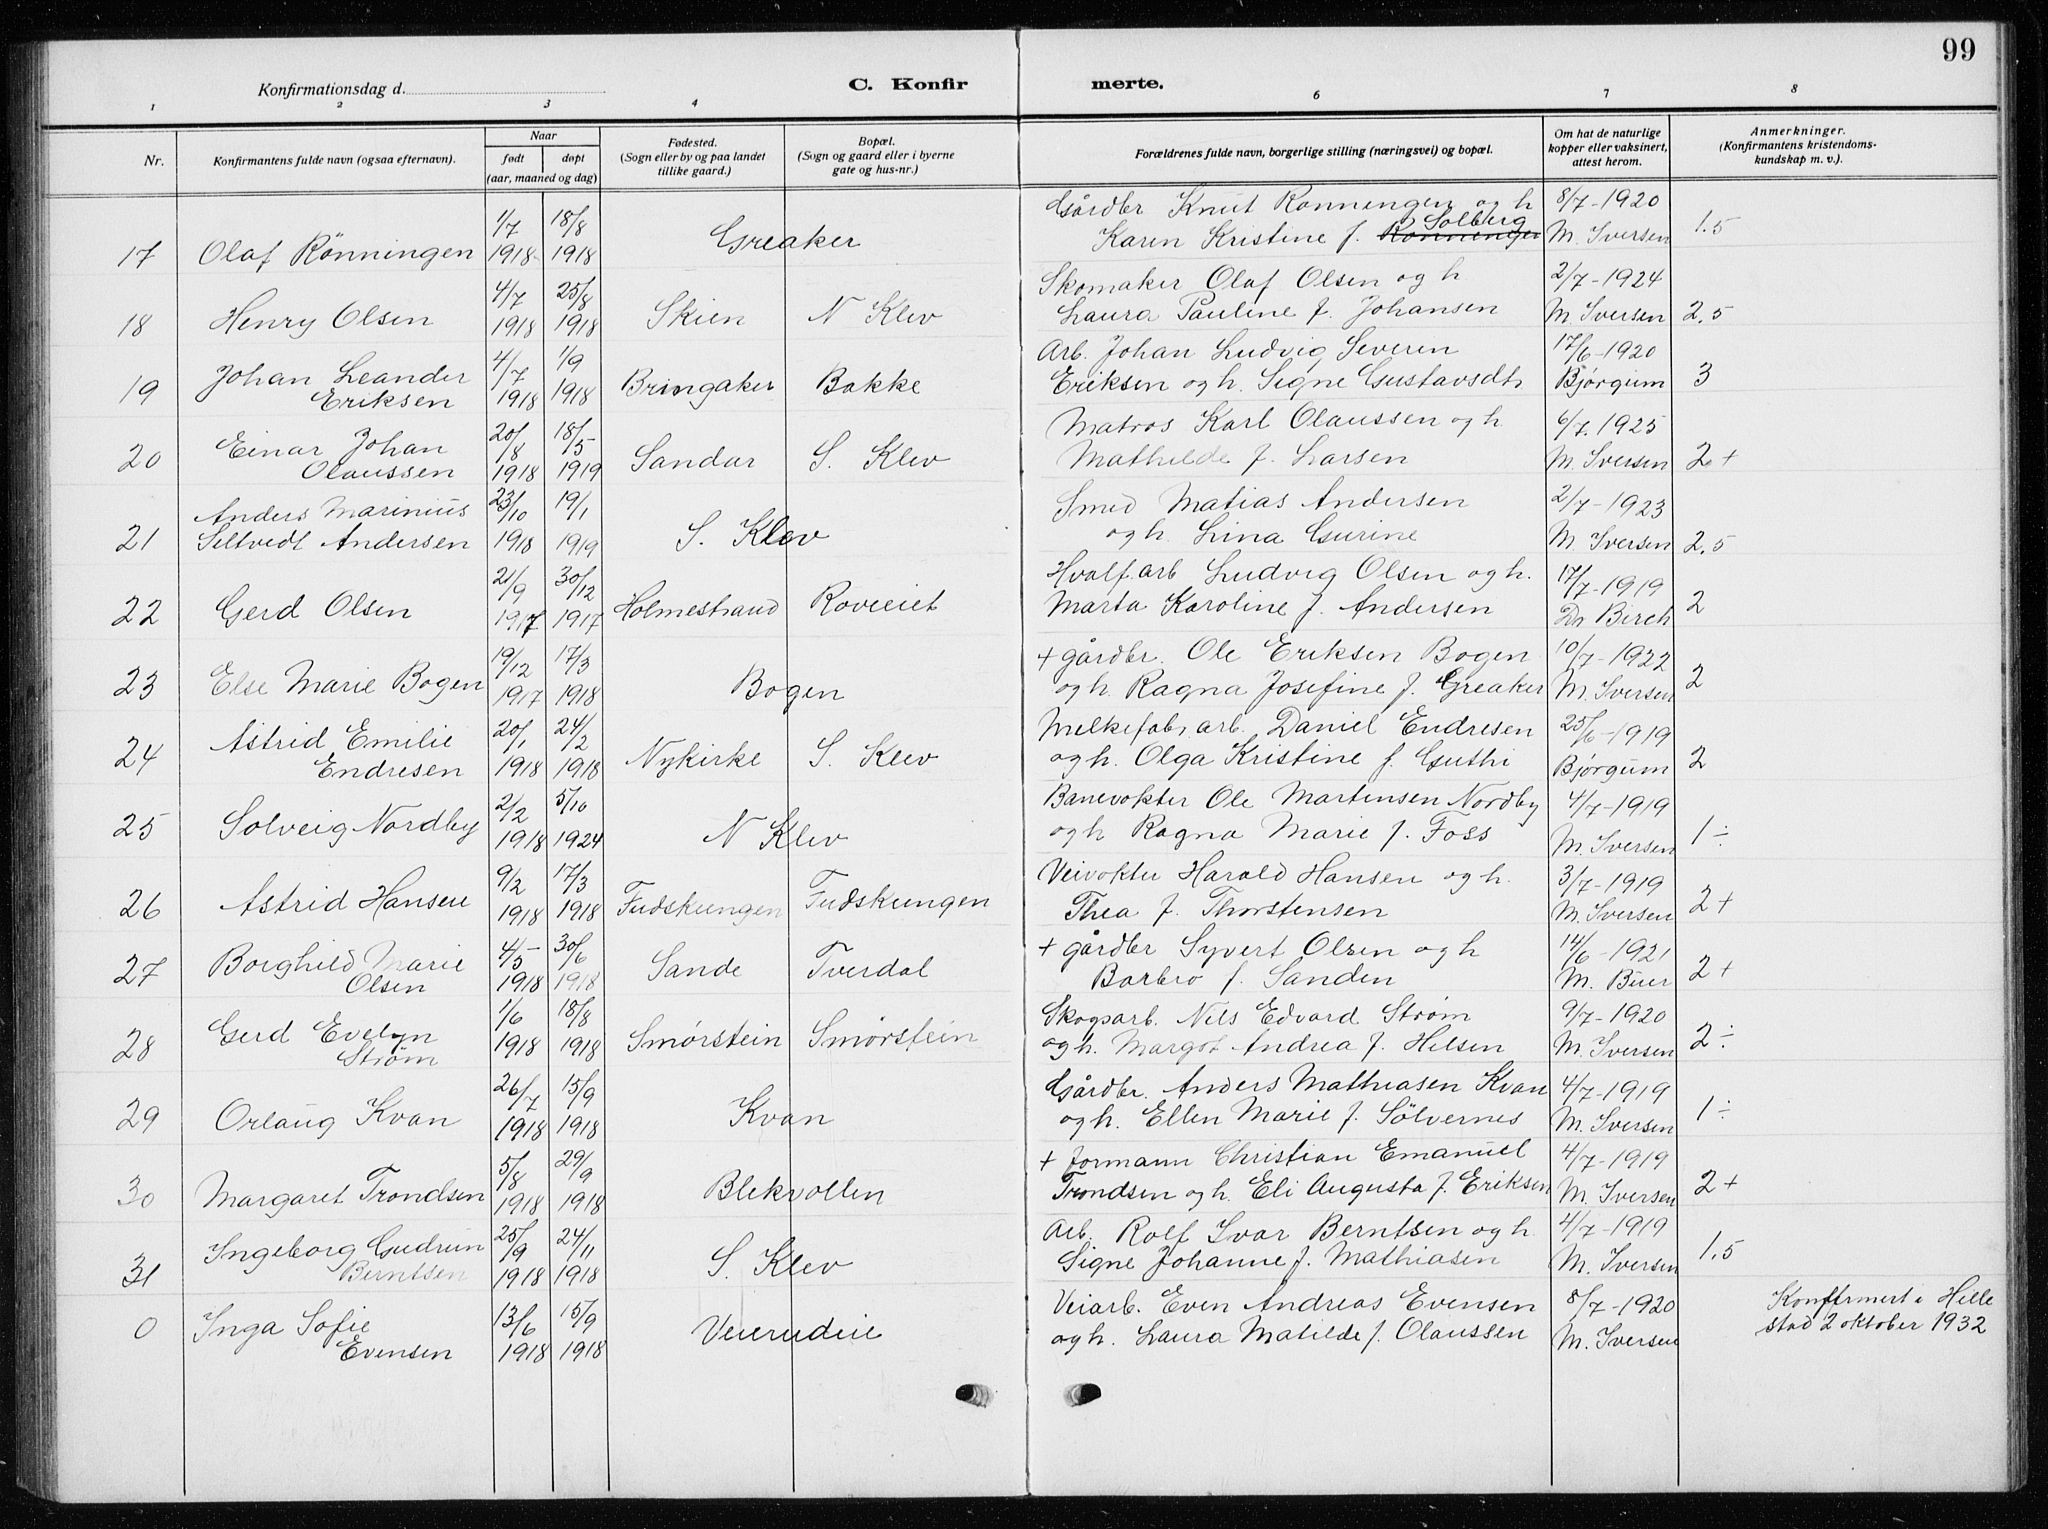 99
Konfirmationsdag d.
C. Konfir
merte.
1 2 3 4 6 7 8
Nr.
Konfirmantens fulde navn (ogsaa efternavn).
Naar
født
døpt
(aar, maaned og dag)
Fødested.
(Sogn eller by og paa landet
tillike gaard.)
Bopæl.
(Sogn og gaard eller i byerne
gate og hus-nr.)
Forældrenes fulde navn, borgerlige stilling (næringsvei) og bopæl.
Om hat de naturlige
kopper eller vaksinert,
attest herom.
Anmerkninger.
(Konfirmantens kristendoms-
kundskap m. v.).
1/7 18/8 Gårdbr Knut Rønningen og h 8/7-1920
17 Olaf Rönningen 1918 1918 Greaker Karen Kristine f. Rønningen Solberg M. Iversen 1.5
4/7 25/8 Skomaker Olaf Olsen og h 2/7-1924
18 Henry Olsen 1918 1918 Skien N Klev Laura Pauline f. Johansen M. Iversen 2.5
Johan Leander 4/7 1/9 Arb. Johan Ludvig Severin 17/6-1920
19 Eriksen 1918 1918 Bringaker Bakke Eriksen og h. Signe Gustavsdt. Bjørgum 3
Einar Johan 20/8 18/5 Matros Karl Olaussen og h 6/7. 1925
20 Olaussen 1918 1919 Sandar S. Klev Mathilde f. Larsen M. Iversen 2+
Anders Marinius 23/10 19/1 Smed Matias Andersen 2/7-1923
21 Seltvedt Andersen 1918 1919 S. Klev og h. Lina Gurine M. Iversen 2.5
21/9 30/12 Hvalf.arb Ludvig Olsen og h. 17/7-1919
22 Gerd Olsen 1917 1917 Holmestrand Roveiet Marta Karoline f. Andersen Dr Birch 2
19/12 17/3 + gårdbr. Ole Eriksen Bogen 10/7-1922
23 Else Marie Bogen 1917 1918 Bogen og h. Ragna Josefine f. Greaker M. Iversen 2
Astrid Emilie 20/1 24/2 Melkefabr arb. Daniel Endresen 25/6-1919
24 Endresen 1918 1918 Nykirke S. Klev og h. Olga Kristine f. Guthi Bjørgum 2
2/2 5/10 Banevokter Ole Martinsen Nordby 4/7-1919
25 Solveig Nordby 1918 1924 N Klev og h Ragna Marie f. Foss M. Iversen 1÷
9/2 17/3 Veivokter Harald Hansen og h. 3/7-1919
26 Astrid Hansen 1918 1918 Fudskungen Fudskungen Thea f. Thorstensen M. Iversen 2+
Borghild Marie 4/5 30/6 + gårdbr Syvert Olsen og h 14/6-1921
27 Olsen 1918 1918 Sande Tverdal Barbro f. Sanden M. Buer 2+
Gerd Evelyn 1/6 18/8 Skogsarb. Nils Edvard Strøm 9/7-1920
28 Strøm 1918 1918 Smørstein Smørstein og h. Margot Andrea f. Helsen M. Iversen 2÷
26/7 15/9 Gårdbr. Anders Mathiasen Kvan 4/7-1919
29 Orlaug Kvan 1918 1918 Kvan og h. Ellen Marie f. Sölvernes M. Iversen 1÷
5/8 29/9 + formann Christian Emanuel 4/7-1919
30 Margaret Trondsen 1918 1918 Blekvollen Trondsen og h. Eli Augusta f. Eriksen M. Iversen 2+
Ingeborg Gudrun 25/9 24/11 Arb. Rolf Ivar Berntsen og h 4/7-1919
31 Berntsen 1918 1918 S. Klev Signe Johanne f. Mathiasen M. Iversen 1.5
Inga Sofie 13/6 15/9 Veiarb. Even Andreas Evensen 8/7-1920 Konfirmert i Hille
0 Evensen 1918 1918 Veierudeie og h. Laura Matilde f. Olaussen M. Iversen stad 2 oktober 1932